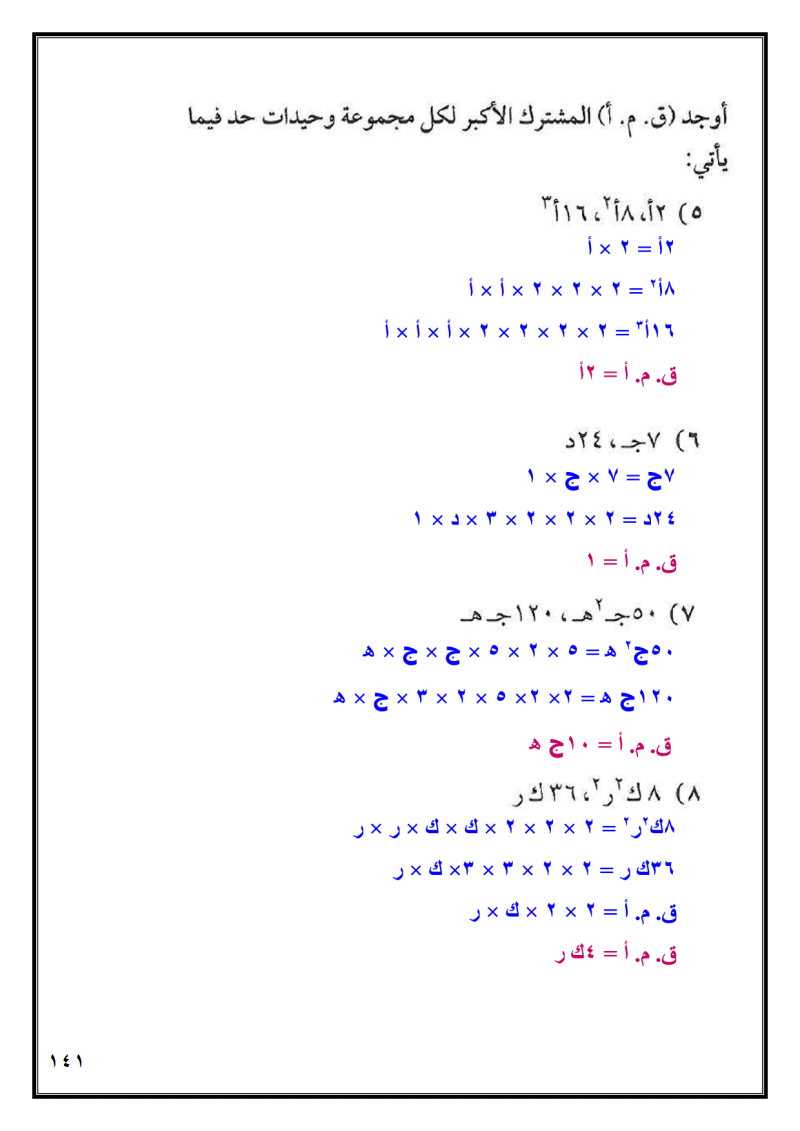 أوجد (ق. م. أ) المشترك الأكبر لكل مجموعة وحيدات حد فيما
يأتي:
٥) ٢أ، ٨أ٢، ١٦أ٣
٢أ = ٢ × أ
٨أ٢ = ٢ × ٢ × ٢ × أ × أ
١٦أ٣ = ٢ × ٢ × ٢ × ٢ × أ × أ × أ
ق. م. أ = ٢أ
٦) ٧جـ، ٢٤د
٧ج = ٧ × ج × ١
٢٤د = ٢ × ٢ × ٢ × ٣ × د × ١
ق. م. أ = ١
٧) ٥٠جـ٢هـ، ١٢٠جـ هـ
٥٠ج٢ ه = ٥ × ٢ × ٥ × ج × ج × ه
١٢٠ج ه = ٢× ٢× ٥ × ٢ × ٣ × ج × ه
ق. م. أ = ١٠ج ه
٨) ٨ك٢ر٢، ٣٦ك ر
٨ك٢ر٢ = ٢ × ٢ × ٢ × ك × ك × ر × ر
٣٦ك ر = ٢ × ٢ × ٣ × ٣× ك × ر
ق. م. أ = ٢ × ٢ × ك × ر
ق. م. أ = ٤ك ر
١٤١